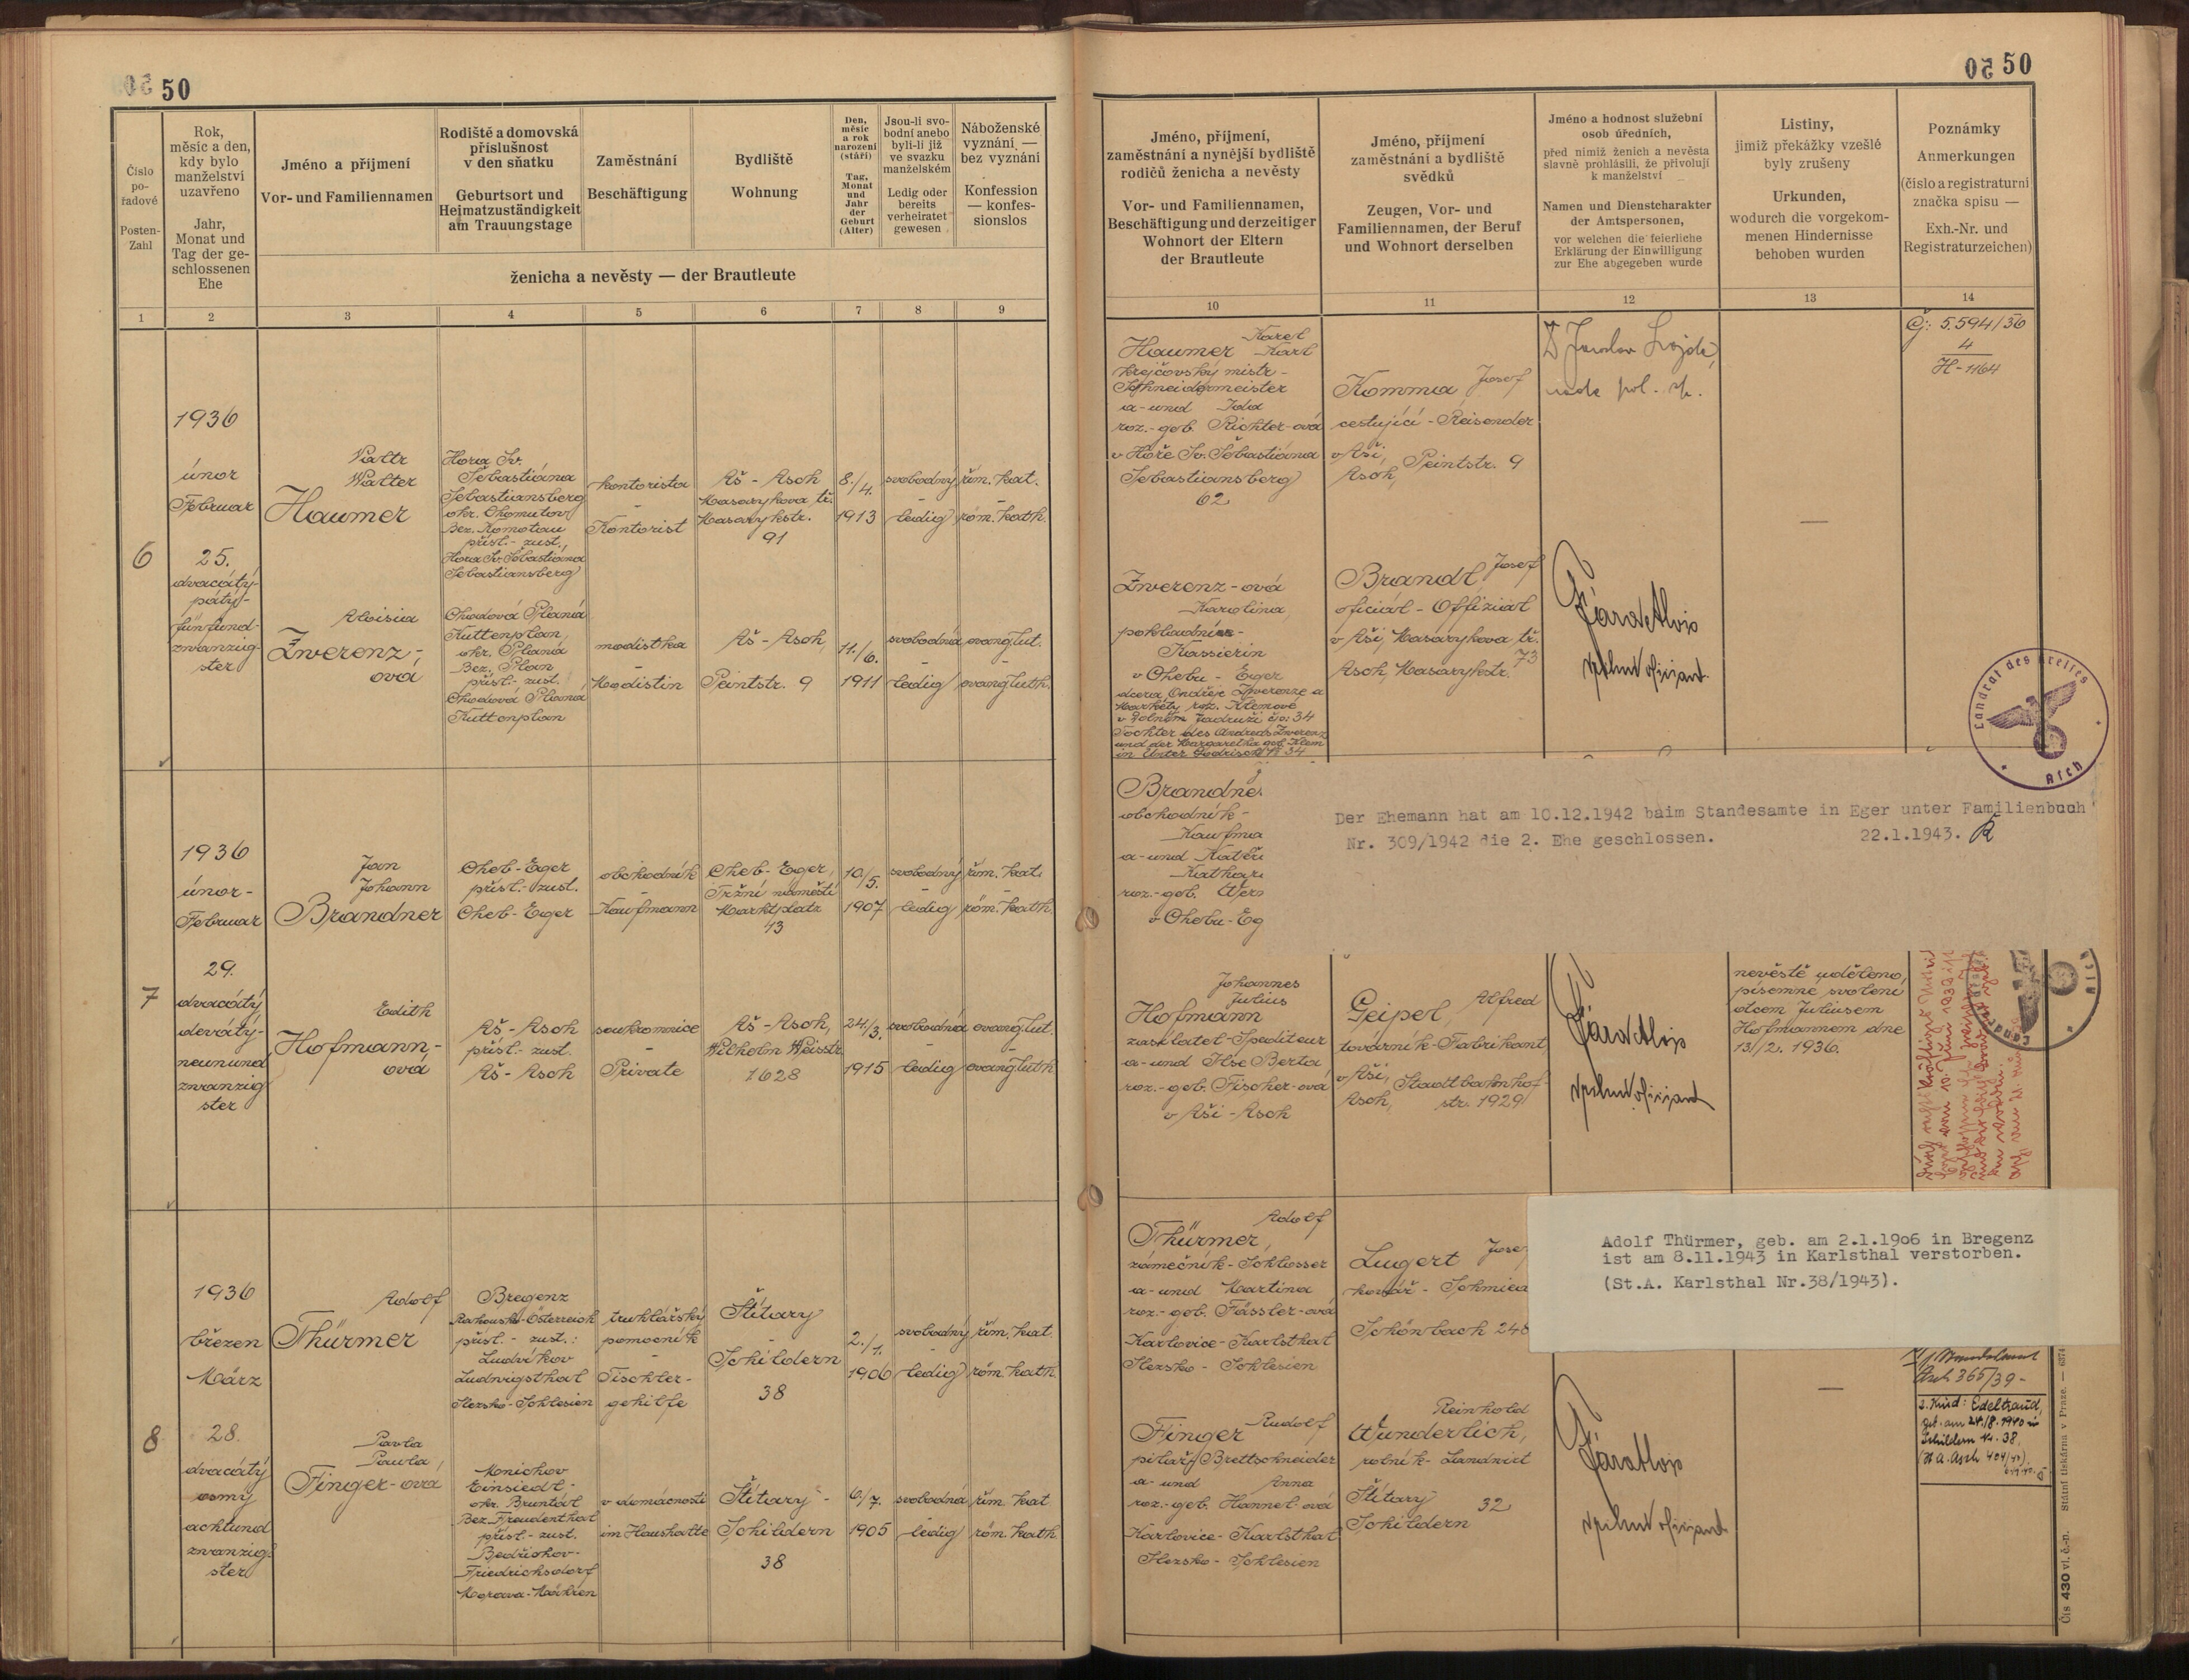 50
50
Číslo po-řadové
Posten-Zahl
Rok,
měsíc a den,
kdy bylo
manželství
uzavřeno
Jahr,
Monat und
Tag der ge-
schlossenen
Ehe
Jméno a příjmení
Vor- und Familiennamen
Rodiště a domovská
příslušnost
v den sňatku
Geburtsort und
Heimatzuständigkeit
am Trauungstage
Zaměstnání
Beschäftigung
Bydliště
Wohnung
Den,
měsíc
a rok
narození
(stáří)
Tag,
Monat
und
Jahr
der
Geburt
(Alter)
Jsou-li svo-
bodní anebo
byli-li již
ve svazku
manželském
Ledig oder
bereits
verheiratet
gewesen
Náboženské
vyznání —
bez vyznání
Konfession
— konfes-
sionslos
ženicha a nevěsty — der Brautleute
1 2 3 4 5 6 7 8 9
Jméno, příjmení,
zaměstnání a nynější bydliště
rodičů ženicha a nevěsty
Vor- und Familiennamen,
Beschäftigung und derzeitiger
Wohnort der Eltern
der Brautleute
Jméno, příjmení
zaměstnání a bydliště
svědků
Zeugen, Vor- und
Familiennamen, der Beruf
und Wohnort derselben
Jméno a hodnost služební
osob úředních,
před nimiž ženich a nevěsta
slavně prohlásili, že přivolují
k manželství
Namen und Dienstcharakter
der Amtspersonen,
vor welchen die feierliche
Erklärung der Einwilligung
zur Ehe abgegeben wurde
Listiny,
jimiž překážky vzešlé
byly zrušeny
Urkunden,
wodurch die vorgekom-
menen Hindernisse
behoben wurden
Poznámky
Anmerkungen
(číslo a registraturní
značka spisu —
Exh.-Nr. und
Registraturzeichen)
10 11 12 13 14
6
1936
únor
Februar
25.
dvacátý-
pátý-
fünfund-
zwanzig-
ster
Valtr
Walter
Haumer
Hora Sv.
Šebastiána
Sebastiansberg
okr. Chomutov
Bez. Komotau
přísl.- zust.
Hora Sv. Šebastiána
Sebastiansberg
kontorista
-
Kontorist
Aš - Asch
Masarykova tř.
Masarykstr.
91
8./4.
1913
svobodný
-
ledig
řím. kat.
-
röm. kath.
Aloisia
Zwerenz-,
ová
Chodová Planá
Kuttenplan,
okr. Planá
Bez. Plan
přísl.- zust.
Chodová Planá
Kuttenplan
modistka
-
Modistin
Aš - Asch,
Peintstr. 9
11./6.
1911
svobodná
-
ledig
evang. lut.
-
evang. luth.
Karel
Haumer Karl
krejčovský mistr -
Schneidermeister
a - und Ida
roz.- geb. Richter-ová
v Hoře Sv. Šebastiána
Sebastiansberg
62
Komma Josef
cestující - Reisender
v Aši,
Asch, Peintstr. 9
Zwerenz-ová
Karolina,
pokladní -
Kassierin
v Chebu - Eger
dcera Ondřeje Zwerenze a
Markéty roz. Klemové
v Dolním Jadruži čp: 34
Tochter des Andreas Zwerenz
und der Margaretha geb. Klem
34
Brandt Josef
oficiál - Offizial
v Aši, Masarykova tř.
Asch, Masarykstr. 73
—
Čj: 5.594/36
4
H-1164
Landrat des Kreises
Asch
7
1936
únor -
Februar
29.
dvacátý
devátý-
neunund
zwanzig
ster
Jan
Johann
Brandner
Cheb - Eger
přísl.- zust.
Cheb - Eger
obchodník
-
Kaufmann
Cheb - Eger,
Tržní náměstí
Marktplatz
43
10./5.
1907
svobodný
-
ledig
řím. kat.
-
röm. kath.
Edith
Hofmann-
ová
Aš - Asch
přísl.- zust.
Aš - Asch
soukromnice
-
Private
Aš - Asch,
Wilhelm Weisstr.
1628
24./3.
1915
svobodná
-
ledig
evang. lut.
-
evang. luth.
Brandne
obchodník -
Kaufma
a - und Kateři
Kathar
roz.- geb. Wers
v Chebu - Eg
Der Ehemann hat am 10.12.1942 baim Standesamte in Eger unter Familienbuch
Nr. 309/1942 die 2. Ehe geschlossen. 22.1.1943.
Johannes
Julius
Hofmann
zasílatel - Spediteur
a - und Ilse Berta
roz.- geb. Fischer-ová
v Aši - Asch
Geipel, Alfred
továrník - Fabrikant,
v Aši,
Asch, Stadtbahnhof-
str. 1929
nevěstě uděleno
písemné svolení
otcem Juliusem
Hofmannem dne
13./2. 1936.
8
1936
březen
März
28.
dvacátý
osmý
achtund
zwanzig
ster
Adolf
Thürmer
Bregenz
Rakousko - Österreich
přísl. - zust.:
Ludvíkov
Ludwigsthal
Slezsko - Schlesien
truhlářský
pomocník
-
Tischler-
gehilfe
Štítary
-
Schildern
38
2./1.
1906
svobodný
-
ledig
řím. kat.
-
röm. kath.
Pavla
Paula,
Finger-ová
Mnichov
Einsiedl -
okr. Bruntál
Bez. Freudenthal
přísl.- zust.
Bedřichov -
Friedrichsdorf
Morava - Mähren
v domácnosti
im Haushalte
Štítary -
Schildern
38
6./7.
1905
svobodná
-
ledig
řím. kat.
-
röm. kath.
Adolf
Thürmer,
zámečník - Schlosser
a - und Martina
roz.- geb. Fässler-ová
Karlovice - Karlsthal
Slezsko - Schlesien
Lugert Josef
kovář - Schmied
Schönbach 248
Adolf Thürmer, geb. am 2.1.1906 in Bregenz
ist am 8.11.1943 in Karlsthal verstorben.
(St.A. Karlsthal Nr.38/1943).
Finger Rudolf
pilař / Brettschneider
a - und Anna
roz.- geb. Hannel-ová
Karlovice - Karlsthal
Slezsko - Schlesien
Reinhold
Wunderlich,
rolník - Landwirt
Štítary 32
Schildern
—
Standesamt
Asch 365/39 -
2. Kind: Edeltraud,
geb. am 24./8. 1940 in
Schildern Nr. 38.
Čís 430 vl. č.-n. Státní tiskárna v Praze. — 6374